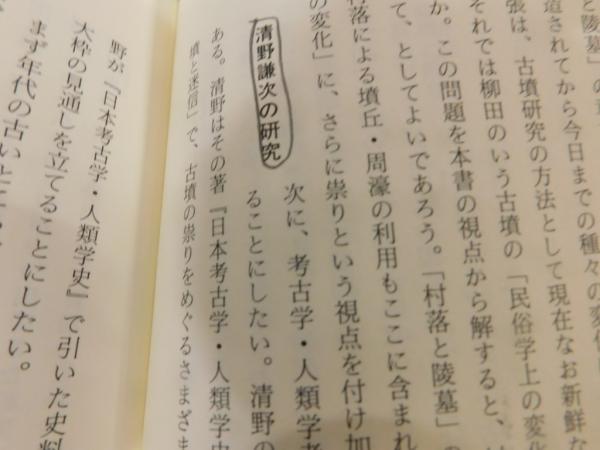 と陵墓」の
造されてから今日までの種々の変化
張は、古墳研究の方法として現在なお新鮮な
それでは柳田のいう古墳の「民俗学上の変化
か。この問題を本書の視点から解すると、
て、としてよいであろう。「村落と陵墓」の
村落による墳丘・周濠の利用もここに含まれ
の変化」に、さらに祟りという視点を付け加
清野謙次の研究
次に、考古学・人類学者
ることにしたい。清野の
ある。清野はその著『日本考古学・人類学史
墳と迷信」で、古墳の祟りをめぐるさまざま
野が『日本考古学・人類学史』で引いた史料
大枠の見通しを立てることにしたい。
まず年代の古い